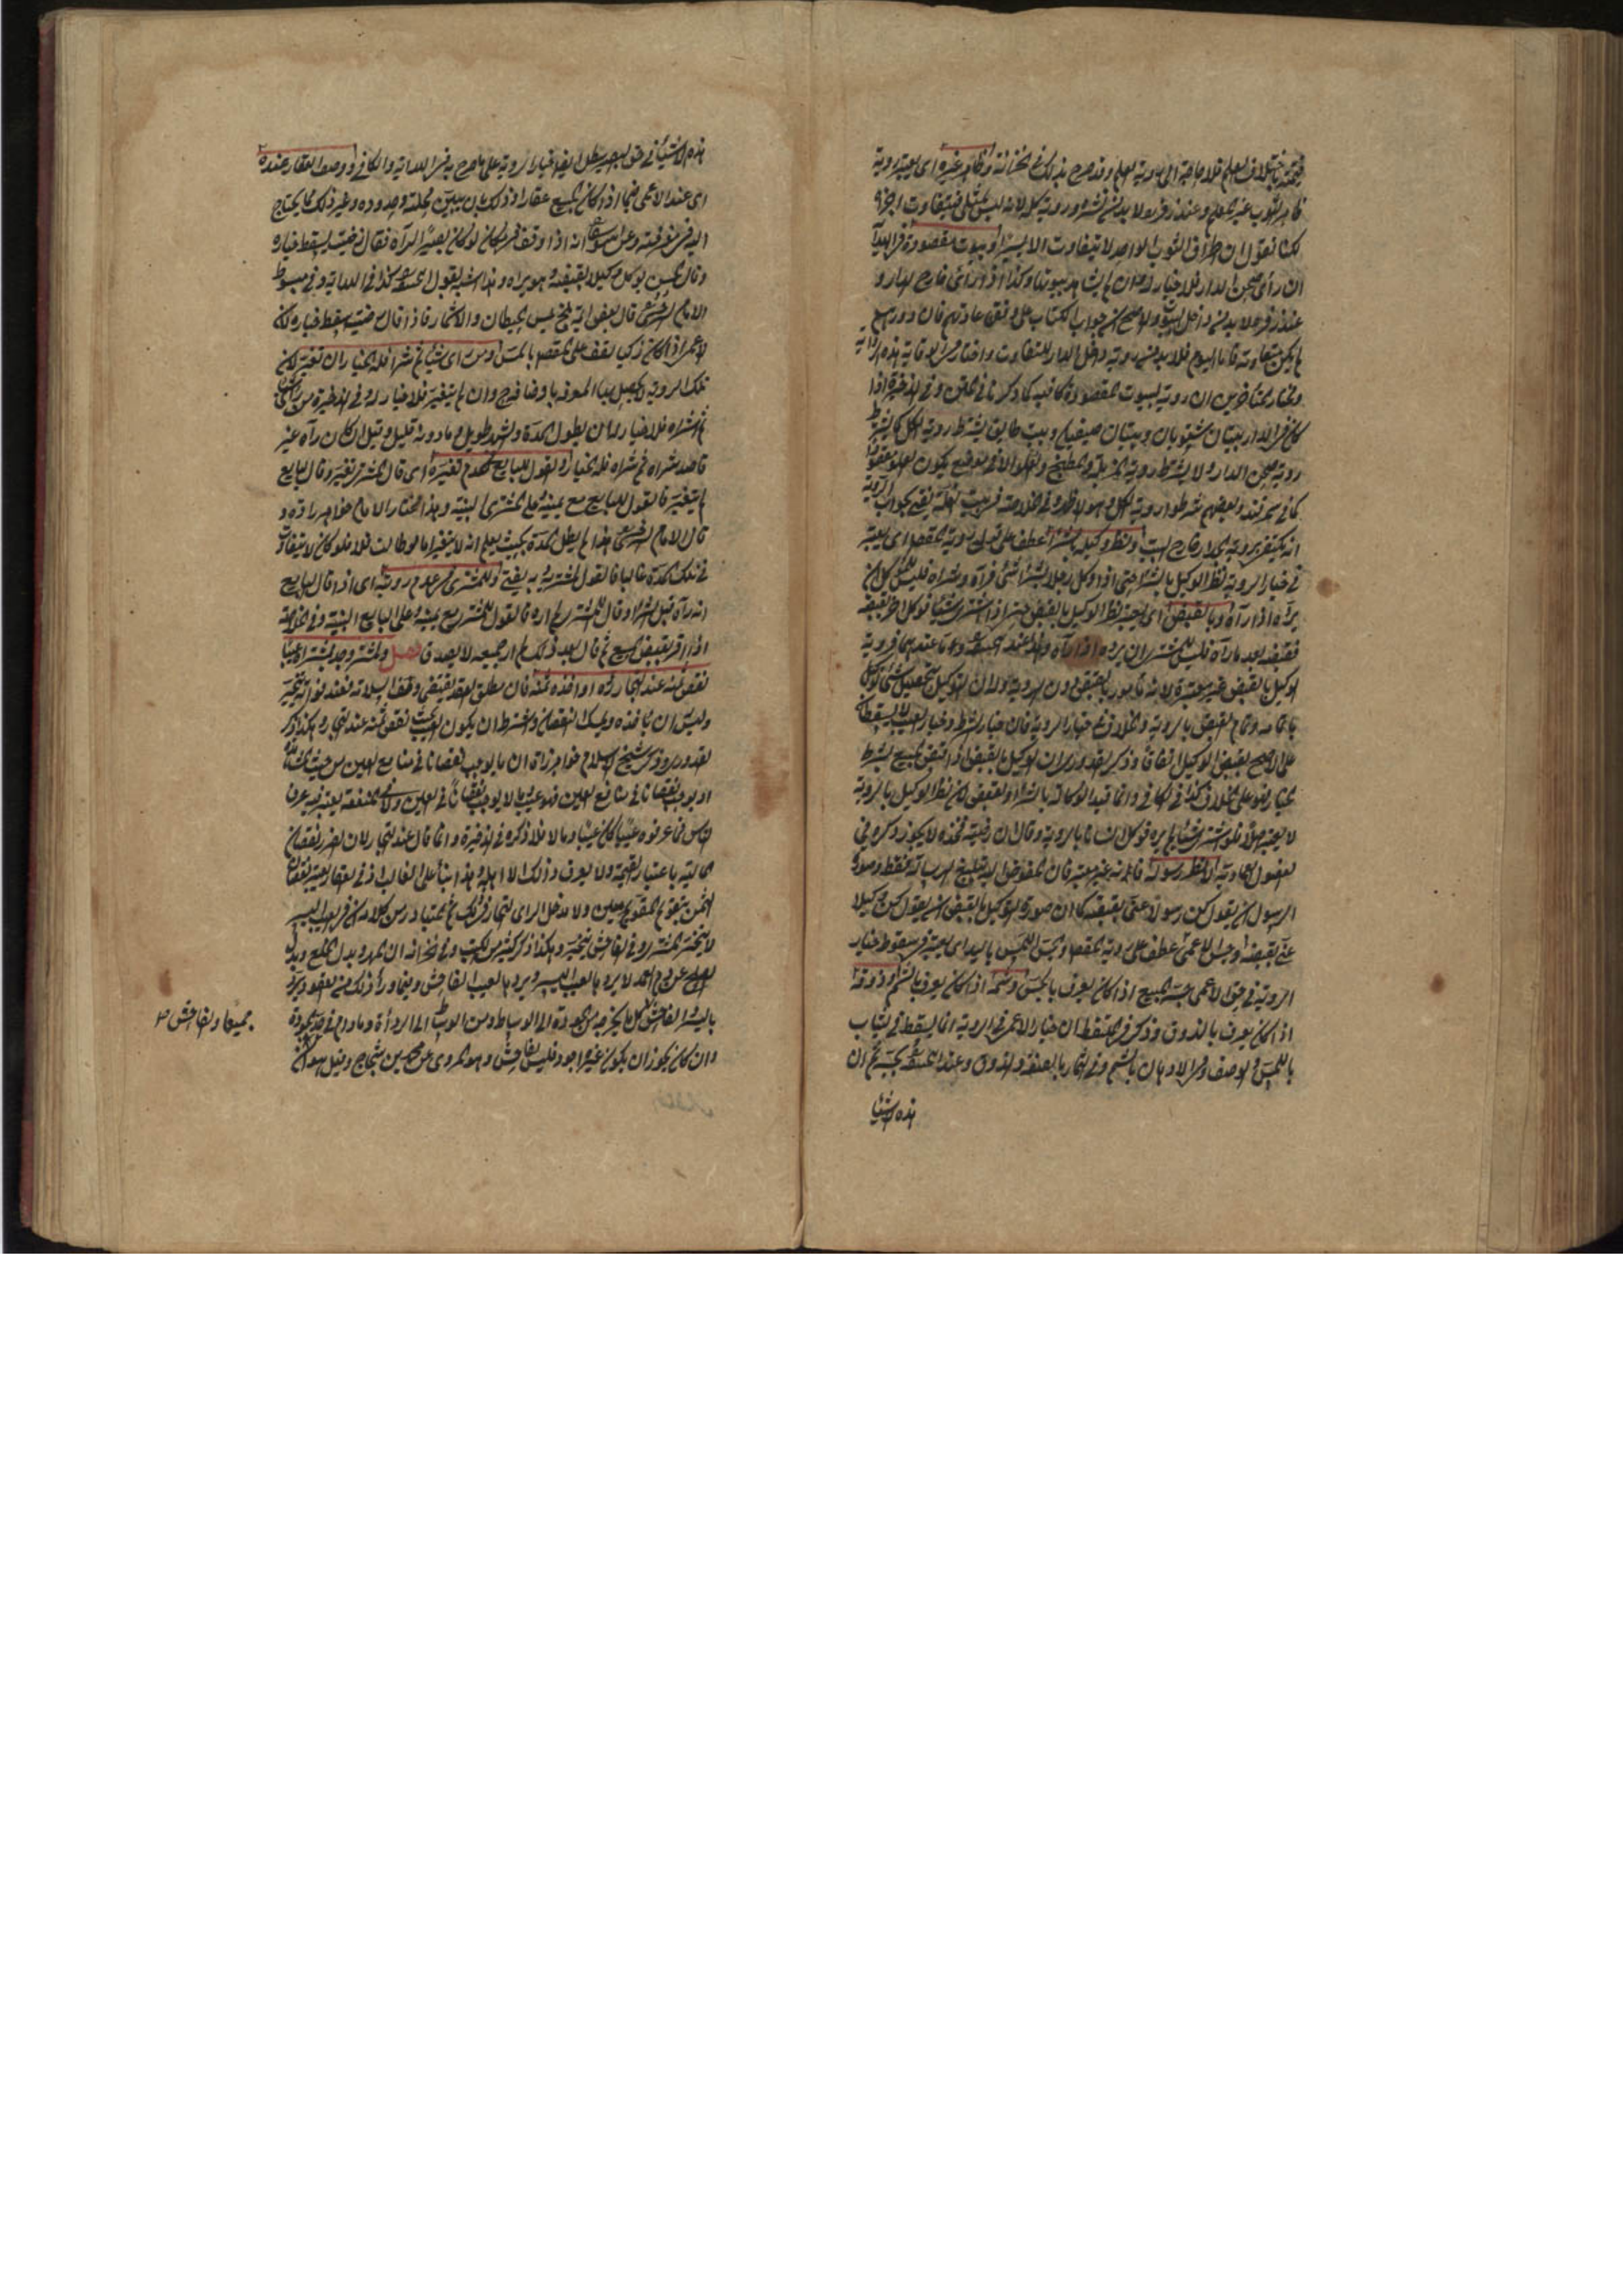 فلا حاجة الى روية العلم وقد صرح بذلك في الخزانة وظاهر غيره اى يعتبر روية
ظاهر الثوب غير المعلم وعند زفر ولا بد من نشره وروية كله لانه ليس بمثلي فيتفاوت اجزاؤه
لكنا نقول ان اطراف الثوب الواحد لا يتفاوت الا يسيرا وبيوت مقصودة في الهداية
ان رأى صحن الدار فلا خيار له وان لم يشاهد بيوتها وكذا اذا رأى خارج الدار و
عند زفر لا بد من داخل البيوت والاصح ان جواب الكتاب على وفق عادتهم فان دورهم
لم يكن متفاوتة فاما اليوم فلا بد من روية داخل الدار للتفاوت واختار في الوقاية هذه الرواية
ومختار المتأخرين ان روية البيوت المقصودة كافية كما ذكرنا في المتن وفي الذخيرة اذا
كان في الدار بيتان شتويان وبيتان صيفيان وبيت طابق يشترط روية الكل كما يشترط
روية صحن الدار ولا يشترط روية المزبلة والمطبخ والعلو الا في موضع يكون العلو مقصودا
كما في سمرقند وبعضهم شرطوا روية الكل وهو الاظهر وفي الخلاصة
انه يكتفى بروية الجدار خارج البيت ونظر وكيله بالشراء عطف على قوله روية المقصود اى يعتبر
في خيار الروية نظر الوكيل بالشراء حتى اذا وكل رجلا بشراء شئ فرآه وشراه فليس للموكل ان
يرده اذا رآه وبالقبض اى يعتبر نظر الوكيل بالقبض حتى اذا اشترى شيئا فوكل آخر بقبضه
فقبضه بعد ما رآه فليس للمشتري ان يرده اذا رآه وهذا عند ابي حنيفة واما عندهما فروية
الوكيل بالقبض غير معتبرة لانه مأمور بالقبض دون الروية وله ان التوكيل بتحصيل شئ توكيل
باتمامه وتمام القبض بالروية والخلاف في خيار الروية فان خيار الشرط وخيار العيب لا يسقطان
على الاصح بقبض الوكيل اتفاقا وذكر القدوري ان الوكيل بالقبض اذا قبض المبيع بشرط
الخيار فهو على الخلاف كذا في الكافي وانما قيد الوكالة بالشراء والقبض لان نظر الوكيل بالروية
لا يعتبر اصلا فلو اشترى شيئا لم يره فوكل انسانا بالروية وقال ان رضيته فخذه لا يجوز ذكره في
الفصول العمادية لا نظر رسوله فانه غير معتبر فان المفوض اليه تبليغ الرسالة فقط وصورة
الرسول ان يقول كن رسولا عني بقبضه كما ان صورة التوكيل بالقبض ان يقول كن وكيلا
عني بقبضه وجس الاعمى عطف على روية المقصود والجس اللمس باليد اى يعتبر في سقوط خيار
الروية في حق الاعمى جسه المبيع اذا كان يعرف بالجس وشمه اذا كان يعرف بالشم وذوقه
اذا كان يعرف بالذوق وذكر في الملتقط ان خيار الاعمى في الروية انما يسقط في الثياب
باللمس والوصف وفي الادهان بالشم وفي الثمار بالصفة والذوق وعند ابي حنيفة يحسبه ثم ان
هذه الاشياء
هذه الاشياء في حق البصير يبطل ايضا خيار الروية على ما صرح به في الهداية والكافي ووصف العقار عنده
اى عند الاعمى فيما اذا كان المبيع عقارا وذلك بان يبين محلته وحدوده وغير ذلك مما يحتاج
اليه في معرفته وعن ابي يوسف انه اذا وقف في مكان لو كان بصيرا لرآه فقال رضيت يسقط خياره
وقال الحسن يوكل وكيلا يقبضه وهو يراه وهذا اشبه بقول ابي حنيفة كذا في الهداية وفي مبسوط
الامام السرخسي قال بعض ائمة بلخ يمس الحيطان والاشجار فاذا قال رضيت يسقط خياره لان
الاعمى اذا كان ذكيا يقف على المقصود بالمس ومن رأى شيئا ثم شراه فله الخيار ان تغير لان
تلك الروية لم يحصل بها المعرفة باوصافه وان لم يتغير فلا خيار له وفي الذخيرة من رأى شيئا
ثم شراه فلا خيار له الا ان يطول المدة والشهر طويل وما دونه قليل وقيل ان كان رآه غير
قاصد شراه ثم شراه فله الخيار والقول للبايع في عدم تغيره اى قال المشتري تغير وقال البايع
لم يتغير فالقول للبايع مع يمينه وعلى المشتري البينة وهذا مختار الامام خواهر زاده و
قال الامام السرخسي هذا اذا لم يطل المدة بحيث يعلم انه لا يتغير اما لو طالت فلا فلو كان لا يتفاوت
في تلك المدة غالبا فالقول للمشتري وبه يفتى وللمشتري في عدم رويته اى اذا قال البايع
انه رآه قبل الشراء وقال المشتري لم اره فالقول للمشتري مع يمينه وعلى البايع البينة وفي الخلاصة
اذا اقر بقبض المبيع ثم قال بعد ذلك لم ار جميعه لا يصدق فصل ولمشتر وجد بمشتراه عيبا
نقص ثمنه عند التجار رده او اخذه بثمنه فان مطلق العقد يقتضي وصف السلامة فعند فواته يتخير
وليس ان يأخذه ويمسك النقصان واشترط ان يكون العيب نقص ثمنه عند التجار وهكذا ذكر
القدوري وذكر شيخ الاسلام خواهر زاده ان ما يوجب نقصانا في منافع العين من حيث المشاهدة
او يوجب نقصانا في منافع العين فهو عيب وما لا يوجب نقصانا في العين ولا في المنفعة يعتبر فيه عرف
الناس فما عرفوه عيبا كان عيبا وما لا فلا ذكره في الذخيرة وانما قال عند التجار لان الضرر نقصان
المالية باعتبار القيمة ولا يعرف ذلك الا اهله وهذا بناء على الغالب اذ في العقار يعتبر نقصان
الثمن بتقويم المقومين ولا مدخل لراى التجار في ذلك ثم المتبادر من كلامه ان في العيب اليسير
لا يتخير المشتري وفي الفاحش يتخير وهكذا ذكر كثير من الكتب وفي الخزانة ان المهر وبدل الخلع وبدل
الصلح عن دم العمد لا يرد بالعيب اليسير ويرد بالعيب الفاحش وفيما وراء ذلك من العقود يرد
باليسير والفاحش جميعا والفاحش كل ما يخرجه من الجودة الى الوساطة ومن الوساطة الى الرداءة وما دام في حد الجودة
وان كان يجوز ان يكون غيره اجود فليس بفاحش وهو المروي عن محمد بن شجاع وقيل هو ان
جميعا والفاحش صح